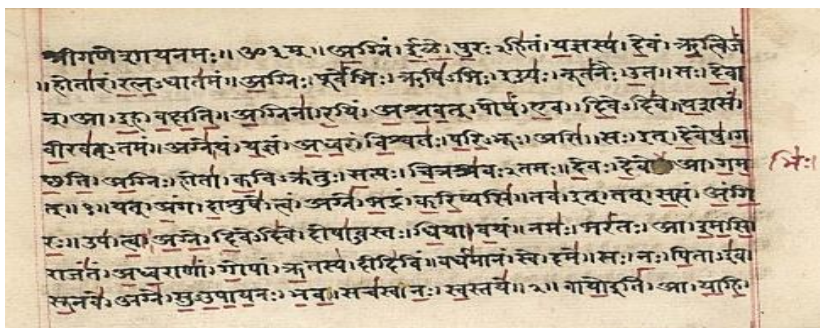 श्रीगणेशायनमः॥ ओ३म्॥ अ॒ग्निं। ई॒ळे॒। पु॒रःऽहि॑तं। य॒ज्ञस्य॑। दे॒वं। ऋ॒त्विजं॑
॥होता॑रं। र॒त्न॒ऽधात॑मं॥ अ॒ग्निः। पूर्वे॑भिः। ऋषि॑ऽभिः। ईड्यः॑। नूत॑नैः। उ॒त॥ सः। दे॒वा
न्। आ। इ॒ह। व॒क्ष॒ति॒॥ अ॒ग्निना॑। र॒यिं। अ॒श्न॒व॒त्। पोषं॑। ए॒व। दि॒वेऽदि॑वे॥ य॒शसं॑
वी॒रव॑त्ऽतमं॥ अग्ने॑। यं। य॒ज्ञं। अ॒ध्व॒रं। वि॒श्वतः॑। प॒रि॒ऽभूः। असि॑॥ सः। इत्। दे॒वेषु॑। ग॒
च्छ॒ति॒॥ अ॒ग्निः। होता॑। क॒विऽक्र॑तुः। स॒त्यः। चि॒त्रश्र॑वःऽतमः॥ दे॒वः। दे॒वे आ। ग॒म॒ भिः॑।
त्॥१॥ यत्। अं॒ग। दा॒शुषे॑। त्वं। अग्ने॑। भ॒द्रं। क॒रि॒ष्यसि॑॥ तव॑। इत्। तत्। स॒त्यं। अं॒गि॒
रः॒॥ उप॑। त्वा॒। अ॒ग्ने॒। दि॒वेऽदि॑वे। दोषा॑ऽवस्तः। धि॒या। व॒यं॥ नमः॑। भरं॑तः। आ। इ॒म॒सि॒
राजं॑तं। अ॒ध्व॒राणां॑। गो॒पां। ऋ॒तस्य॑। दीदि॑विं॥ वर्ध॑मानं। स्वे। दमे॑॥ सः। नः॒। पि॒ताऽइ॑व
सू॒नवे॑। अग्ने॑। सु॒ऽउ॒पा॒य॒नः। भ॒व॒॥ सच॑स्व। नः॒। स्व॒स्तये॑॥२॥ वायो॒ इति॑। आ। या॒हि॒